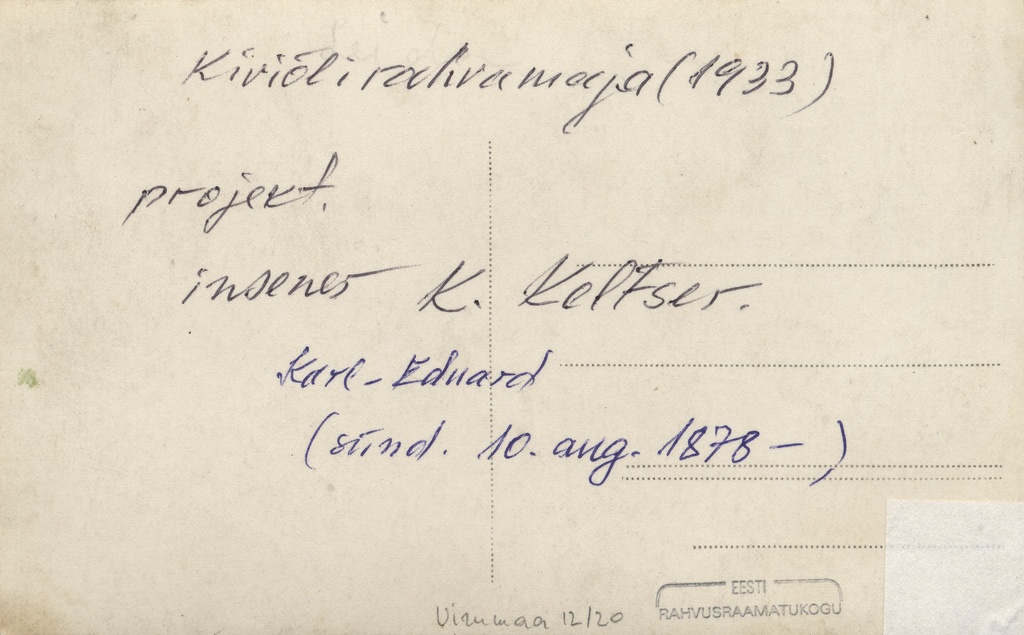 Kiviõli rahvamaja (1933)
projekt.
insener K. Keltser.
Karl-Eduard
(sünd. 10. aug. 1878 – )
Virumaa 12/20
EESTI
RAHVUSRAAMATUKOGU